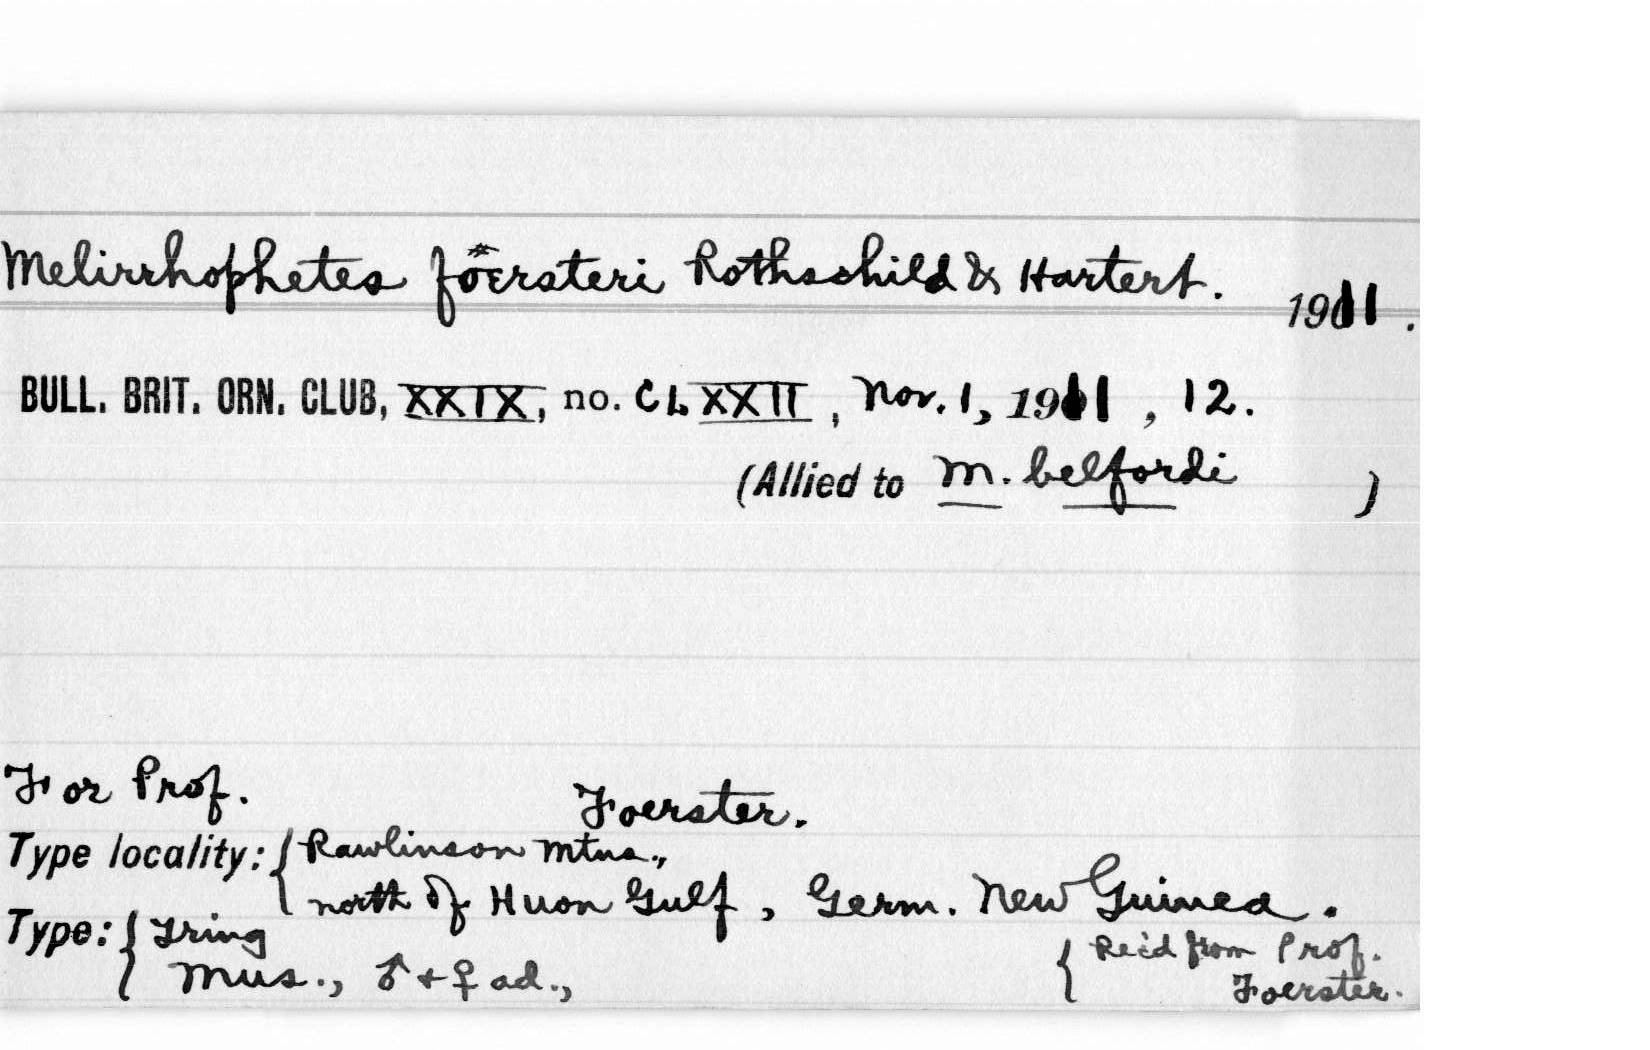 Melirrhophetes föersteri Rothschild & Hartert. 1911.
BULL. BRIT. ORN. CLUB, XXIX, no. CLXXII, Nov. 1, 1911, 12.
(Allied to M. belfordi )
For Prof. Foerster.
Type locality: { Rawlinson Mtns.,
north of Huon Gulf, Germ. New Guinea.
Type: { Tring { Rec'd from Prof.
Mus., ♂ + ♀ ad., Foerster.